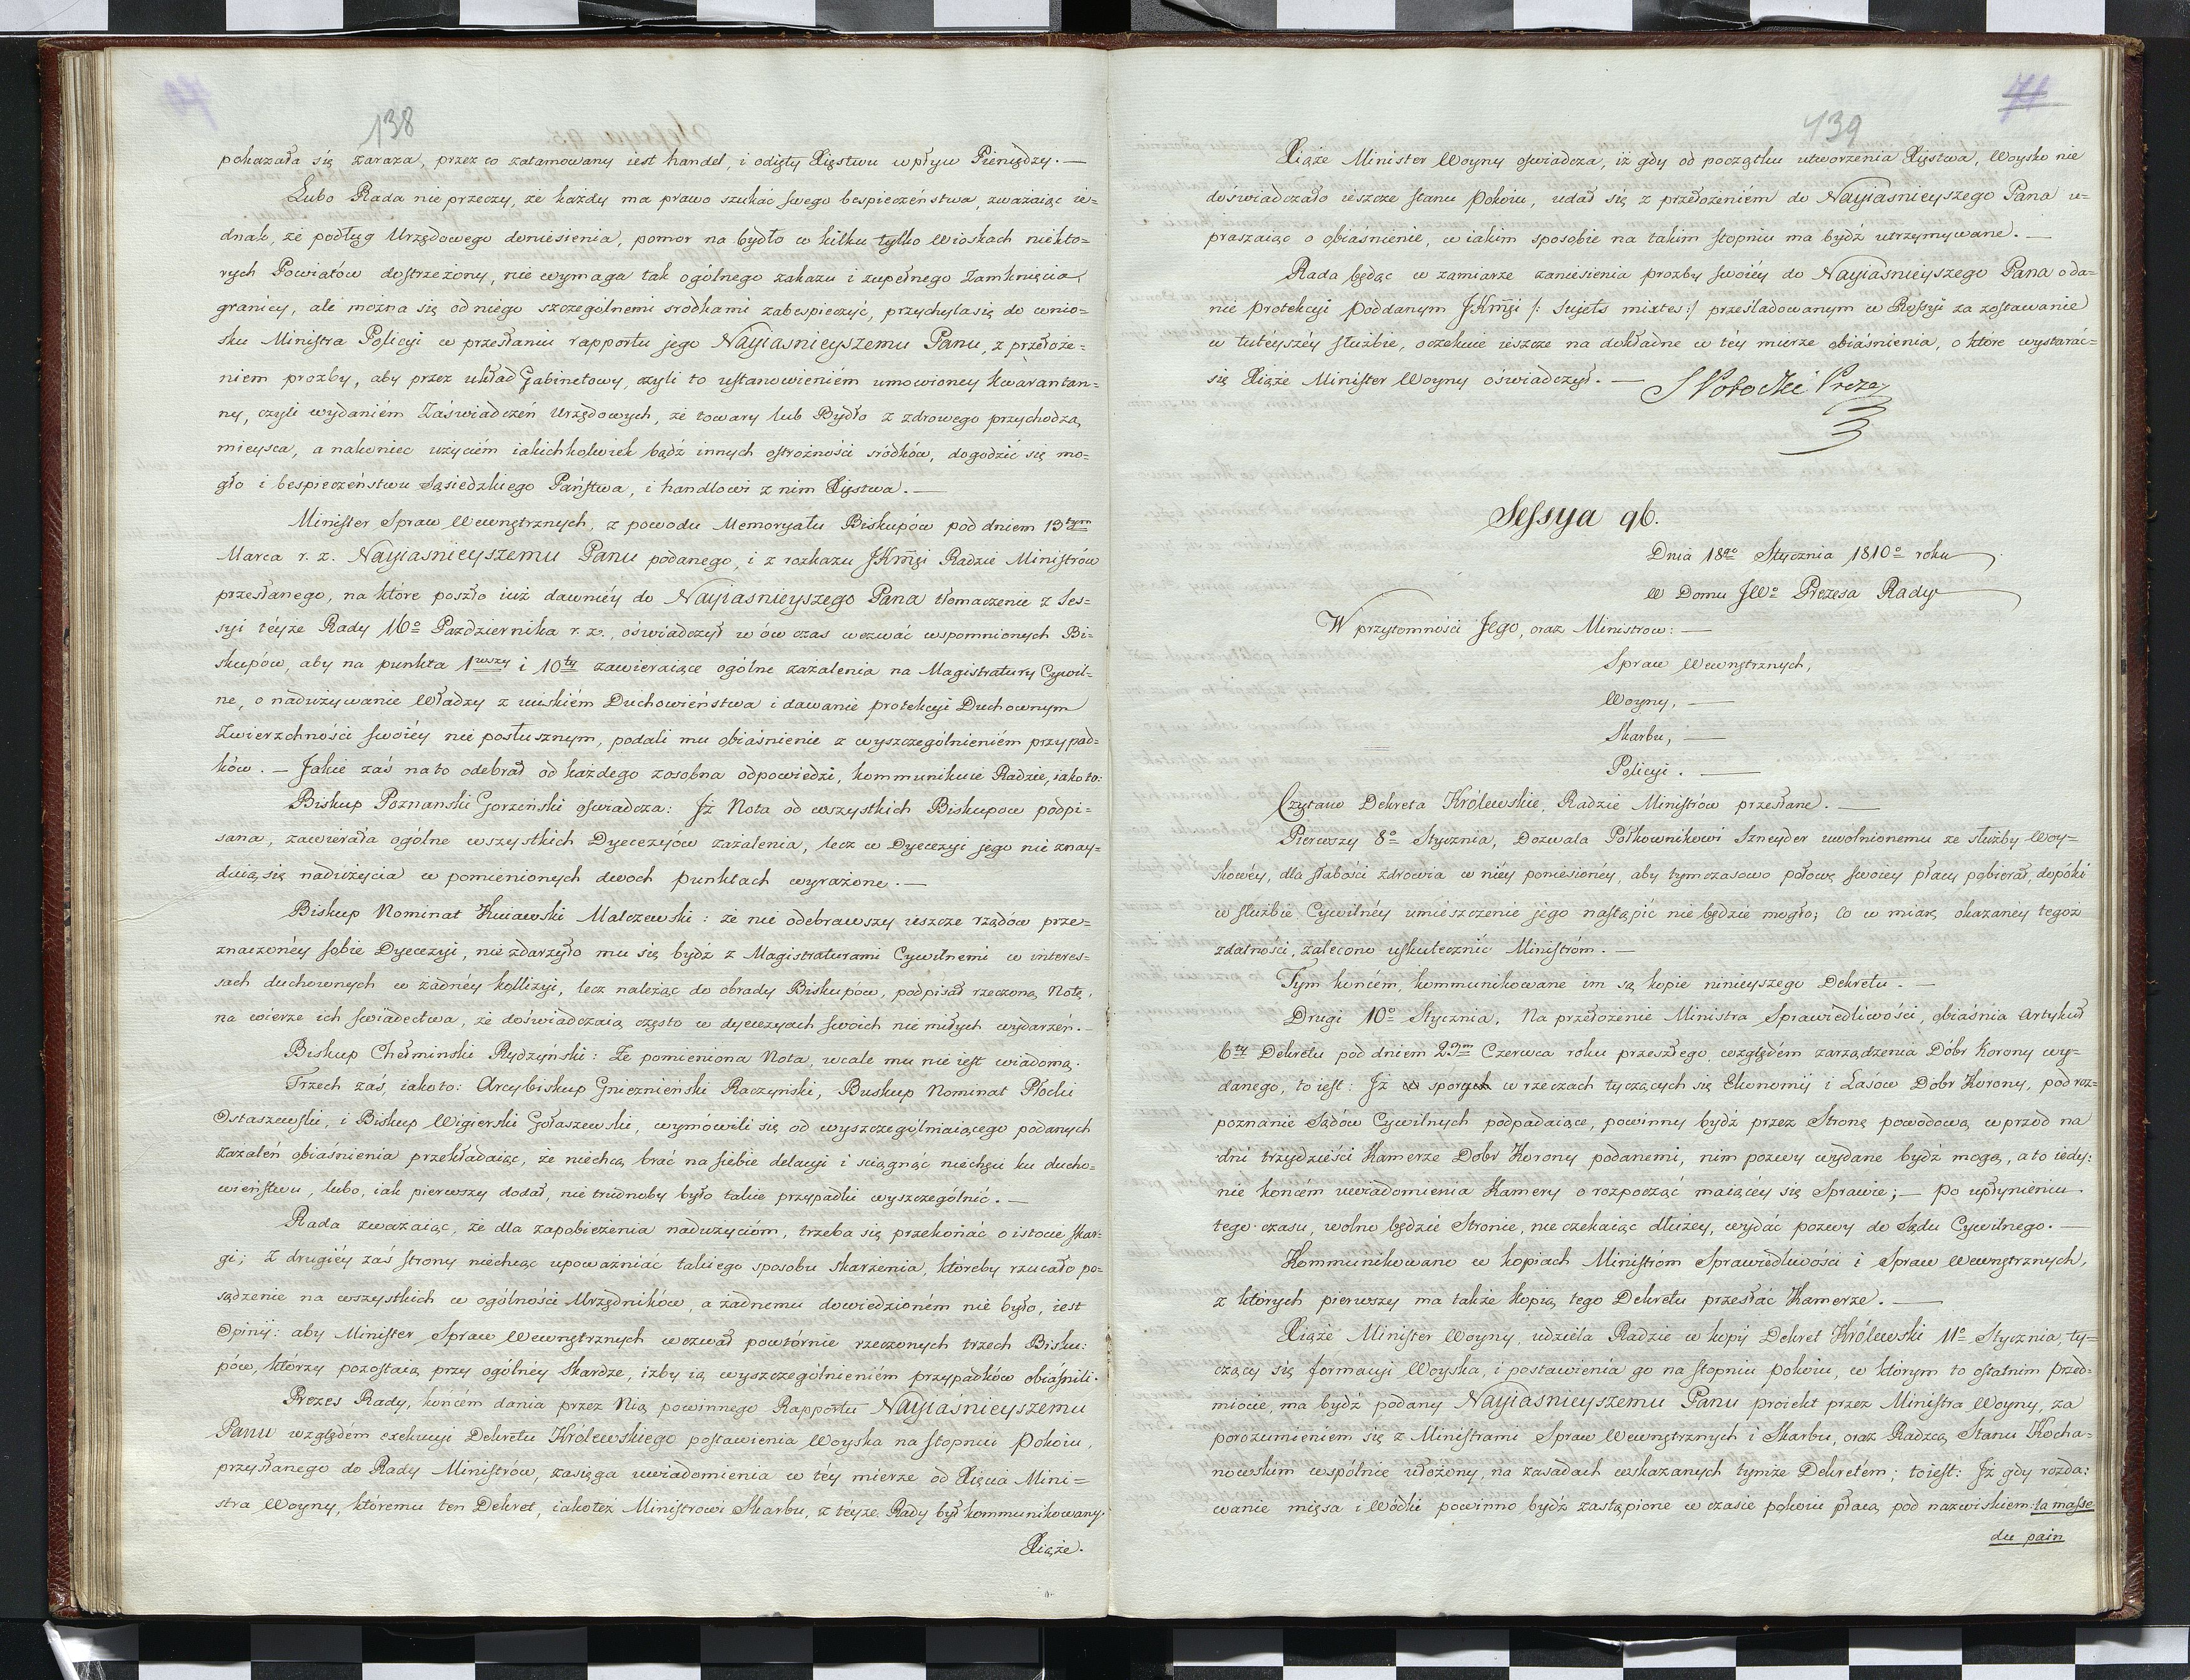 138
pokazała się zaraza, przez co zatamowany iest handel, i odięty Xięstwu wpływ Pieniędzy. —
Lubo Rada nie przeczy, że każdy ma prawo szukać swego bespieczeństwa, zważaiąc ie=
dnak, że podług Urzędowego doniesienia, pomor na bydło w kilku tylko Wioskach niekto=
rych Powiatów dostrzeżony, nie wymaga tak ogólnego zakazu i zupełnego Zamknięcia
granicy, ale można się od niego szczególnemi srodkami zabespieczyć, przychyla się do wnio=
sku Ministra Policyi w przesłaniu rapportu jego Nayiasnieyszemu Panu, z przełoże=
niem prozby, aby przez układ Gabinetowy, czyli to ustanowieniém umowioney kwarantan=
ny, czyli wydaniém Zaświadczeń Urzędowych, że towary lub Bydło z zdrowego przychodzą
mieysca, a nakoniec użyciém iakichkolwiek bądź innych ostrożności srodków, dogodzić się mo=
gło i bespieczeństwu Sąsiedzkiego Państwa, i handlowi z nim Xięstwa. —
Minister Spraw Wewnętrznych, z powodu Memoryału Biskupów pod dniem 13tym
Marca r. z. Nayiasnieyszemu Panu podanego, i z rozkazu JKmci Radzie Ministrów
przesłanego, na które poszło iuż dawniéy do Nayiasnieyszego Pana tłomaczenie z Ses=
syi téyże Rady 16o Pazdziernika r. z., oświadczył w ów czas wezwać wspomnionych Bi=
skupów, aby na punkta 1wszy i 10ty zawieraiące ogólne zażalenia na Magistratury Cywil=
ne, o nadużywanie Władzy z uciskiém Duchowieństwa i dawanie protekcyi Duchownym
Zwierzchności swoiéy nie posłusznym, podali mu obiaśnienie z wyszczególnieniém przypad=
ków. — Jakie zaś na to odebrał od każdego zosobna odpowiedzi, kommunikuie Radzie, iako to:
Biskup Poznanski Gorzeński oswiadcza: Jż Nota od wszystkich Biskupow podpi=
sana, zawierała ogólne wszystkich Dyecezyów zażalenia, lecz w Dyecezyi jego nie znay=
duią się nadużycia w pomienionych dwoch punktach wyrażone. —
Biskup Nominat Kuiawski Malczewski: że nie odebrawszy ieszcze rządów prze=
znaczonéy sobie Dyecezyi, nie zdarzyło mu się bydź z Magistraturami Cywilnemi w interes=
sach duchownych w żadnéy kollizyi, lecz należąc do obrady Biskupów, podpisał rzeczoną Notę,
na wierze ich swiadectwa, że doświadczaią często w dyecezyach swoich nie miłych wydarzeń. —
Biskup Chełminski Rydzyński: Że pomieniona Nota, wcale mu nie iest wiadomą.
Trzech zaś, iako to: Arcybiskup Gnieznieński Raczyński, Buskup Nominat Płocki
Ostaszewski, i Biskup Wigierski Gołaszewski, wymówili się od wyszczególniaiącego podanych
Zażaleń obiaśnienia przekładaiąc, że niechcą brać na siebie delacyi i sciągnąć niechęci ku ducho=
wieństwu, lubo, iak pierwszy dodał, nie trudnoby było takie przypadki wyszczególnić. —
Rada zważaiąc, że dla zapobieżenia nadużyciom, trzeba się przekonać o istocie skar=
gi; z drugiéy zaś strony niechcąc upoważniać takiego sposobu skarżenia, któreby rzucało po=
sądzenie na wszystkich w ogólności Urzędników, a żadnemu dowiedzioném nie było, iest
Opinii: aby Minister Spraw Wewnętrznych wezwał powtórnie rzeczonych trzech Bisku=
pów, którzy pozostaią przy ogólnéy Skardze, iżby ią wyszczególnieniém przypadków obiaśnili.
Prezes Rady, końcém dania przez Nią powinnego Rapportu Nayiaśnieyszemu
Panu względém exekucyi Dekretu Królewskiego postawienia Woyska na stopniu Pokoiu,
przysłanego do Rady Ministrów, zasięga uwiadomienia w téy mierze od Xięcia Mini=
stra Woyny, któremu ten Dekret, iakoteż Ministrowi Skarbu, z téyże Rady był kommunikowany.
Xiąże.
71
139
Xiąże Minister Woyny oswiadcza, iż gdy od początku utworzenia Xięstwa, Woysko nie
doświadczało ieszcze stanu Pokoiu, udał się z przełożeniém do Nayiasnieyszego Pana u=
praszaiąc o obiaśnienie, w iakim sposobie na takim stopniu ma bydź utrzymywane. —
Rada będąc w zamiarze zaniesienia prozby swoiéy do Nayiasnieyszego Pana o da=
nie Protekcyi Poddanym JKmci /: Sujets mixtes :/ prześladowanym w Rossyi za zostawanie
w tuteyszéy służbie, oczekuie ieszcze na dokładne w téy mierze obiaśnienia, o które wystarać=
się Xiąże Minister Woyny oświadczył. — S Potocki Prezes
Sessya 96.
Dnia 18go Stycznia 1810o roku
w Domu JWo Prezesa Rady
W przytomności Jego, oraz Ministrow: —
Spraw Wewnętrznych,
Woyny, —
Skarbu, —
Policyi. —
Czytano Dekreta Królewskie, Radzie Ministrów przesłane. —
Pierwszy 8o Stycznia, Dozwala Półkownikowi Szneyder uwolnionemu ze służby Woy=
skowéy, dla słabości zdrowia w niéy poniesionéy, aby tymczasowo połowę swoiey płacy pobierał, dopóki
w służbie Cywilnéy umieszczenie jego nastąpić nie będzie mogło; Co w miarę okazaney tegoż
zdatności, zalecono uskutecznić Ministróm. —
Tym końcém, kommunikowane im są kopie ninieyszego Dekretu. —
Drugi 10o Stycznia, Na przełożenie Ministra Sprawiedliwości, obiaśnia Artykuł
6ty Dekretu pod dniem 23m Czerwca roku przeszłego, względém zarządzenia Dóbr Korony wy=
danego, to iest: Jż w sporych w rzeczach tyczących się Ekonomij i Lasów Dobr Korony, pod roz=
poznanie Sądów Cywilnych podpadaiące, powinny bydź przez Stronę powodową wprzod na
dni trzydzieści Kamerze Dobr Korony podanemi, nim pozwy wydane bydź mogą, a to iedy=
nie końcém uwiadomienia Kamery o rozpocząć maiącéy się Sprawie; — po upłynieniu
tego czasu, wolno będzie Stronie, nie czekaiąc dłużey, wydać pozwy do Sądu Cywilnego. —
Kommunikowano w kopiach Ministróm Sprawiedliwości i Spraw Wewnętrznych,
z których pierwszy ma także kopią tego Dekretu przesłać Kamerze. —
Xiąże Minister Woyny, udziela Radzie w kopij Dekret Królewski 11o Stycznia, ty=
czący się formacyi Woyska, i postawienia go na stopniu pokoiu, w którym to ostatnim przed=
miocie, ma bydź podany Nayiasnieyszemu Panu proiekt przez Ministra Woyny, za
porozumieniem się z Ministrami Spraw Wewnętrznych i Skarbu, oraz Radzcą Stanu Kocha=
nowskim wspólnie ułożony, na zasadach wskazanych tymże Dekretém; to iest: Jż gdy rozda=
wanie mięsa i Wódki powinno bydź zastąpione w czasie pokoiu płacą pod nazwiskiem: la masse
du pain